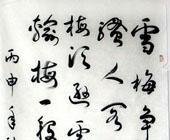 雪梅争
骚人阁
梅须逊雪
输梅一段
丙申年